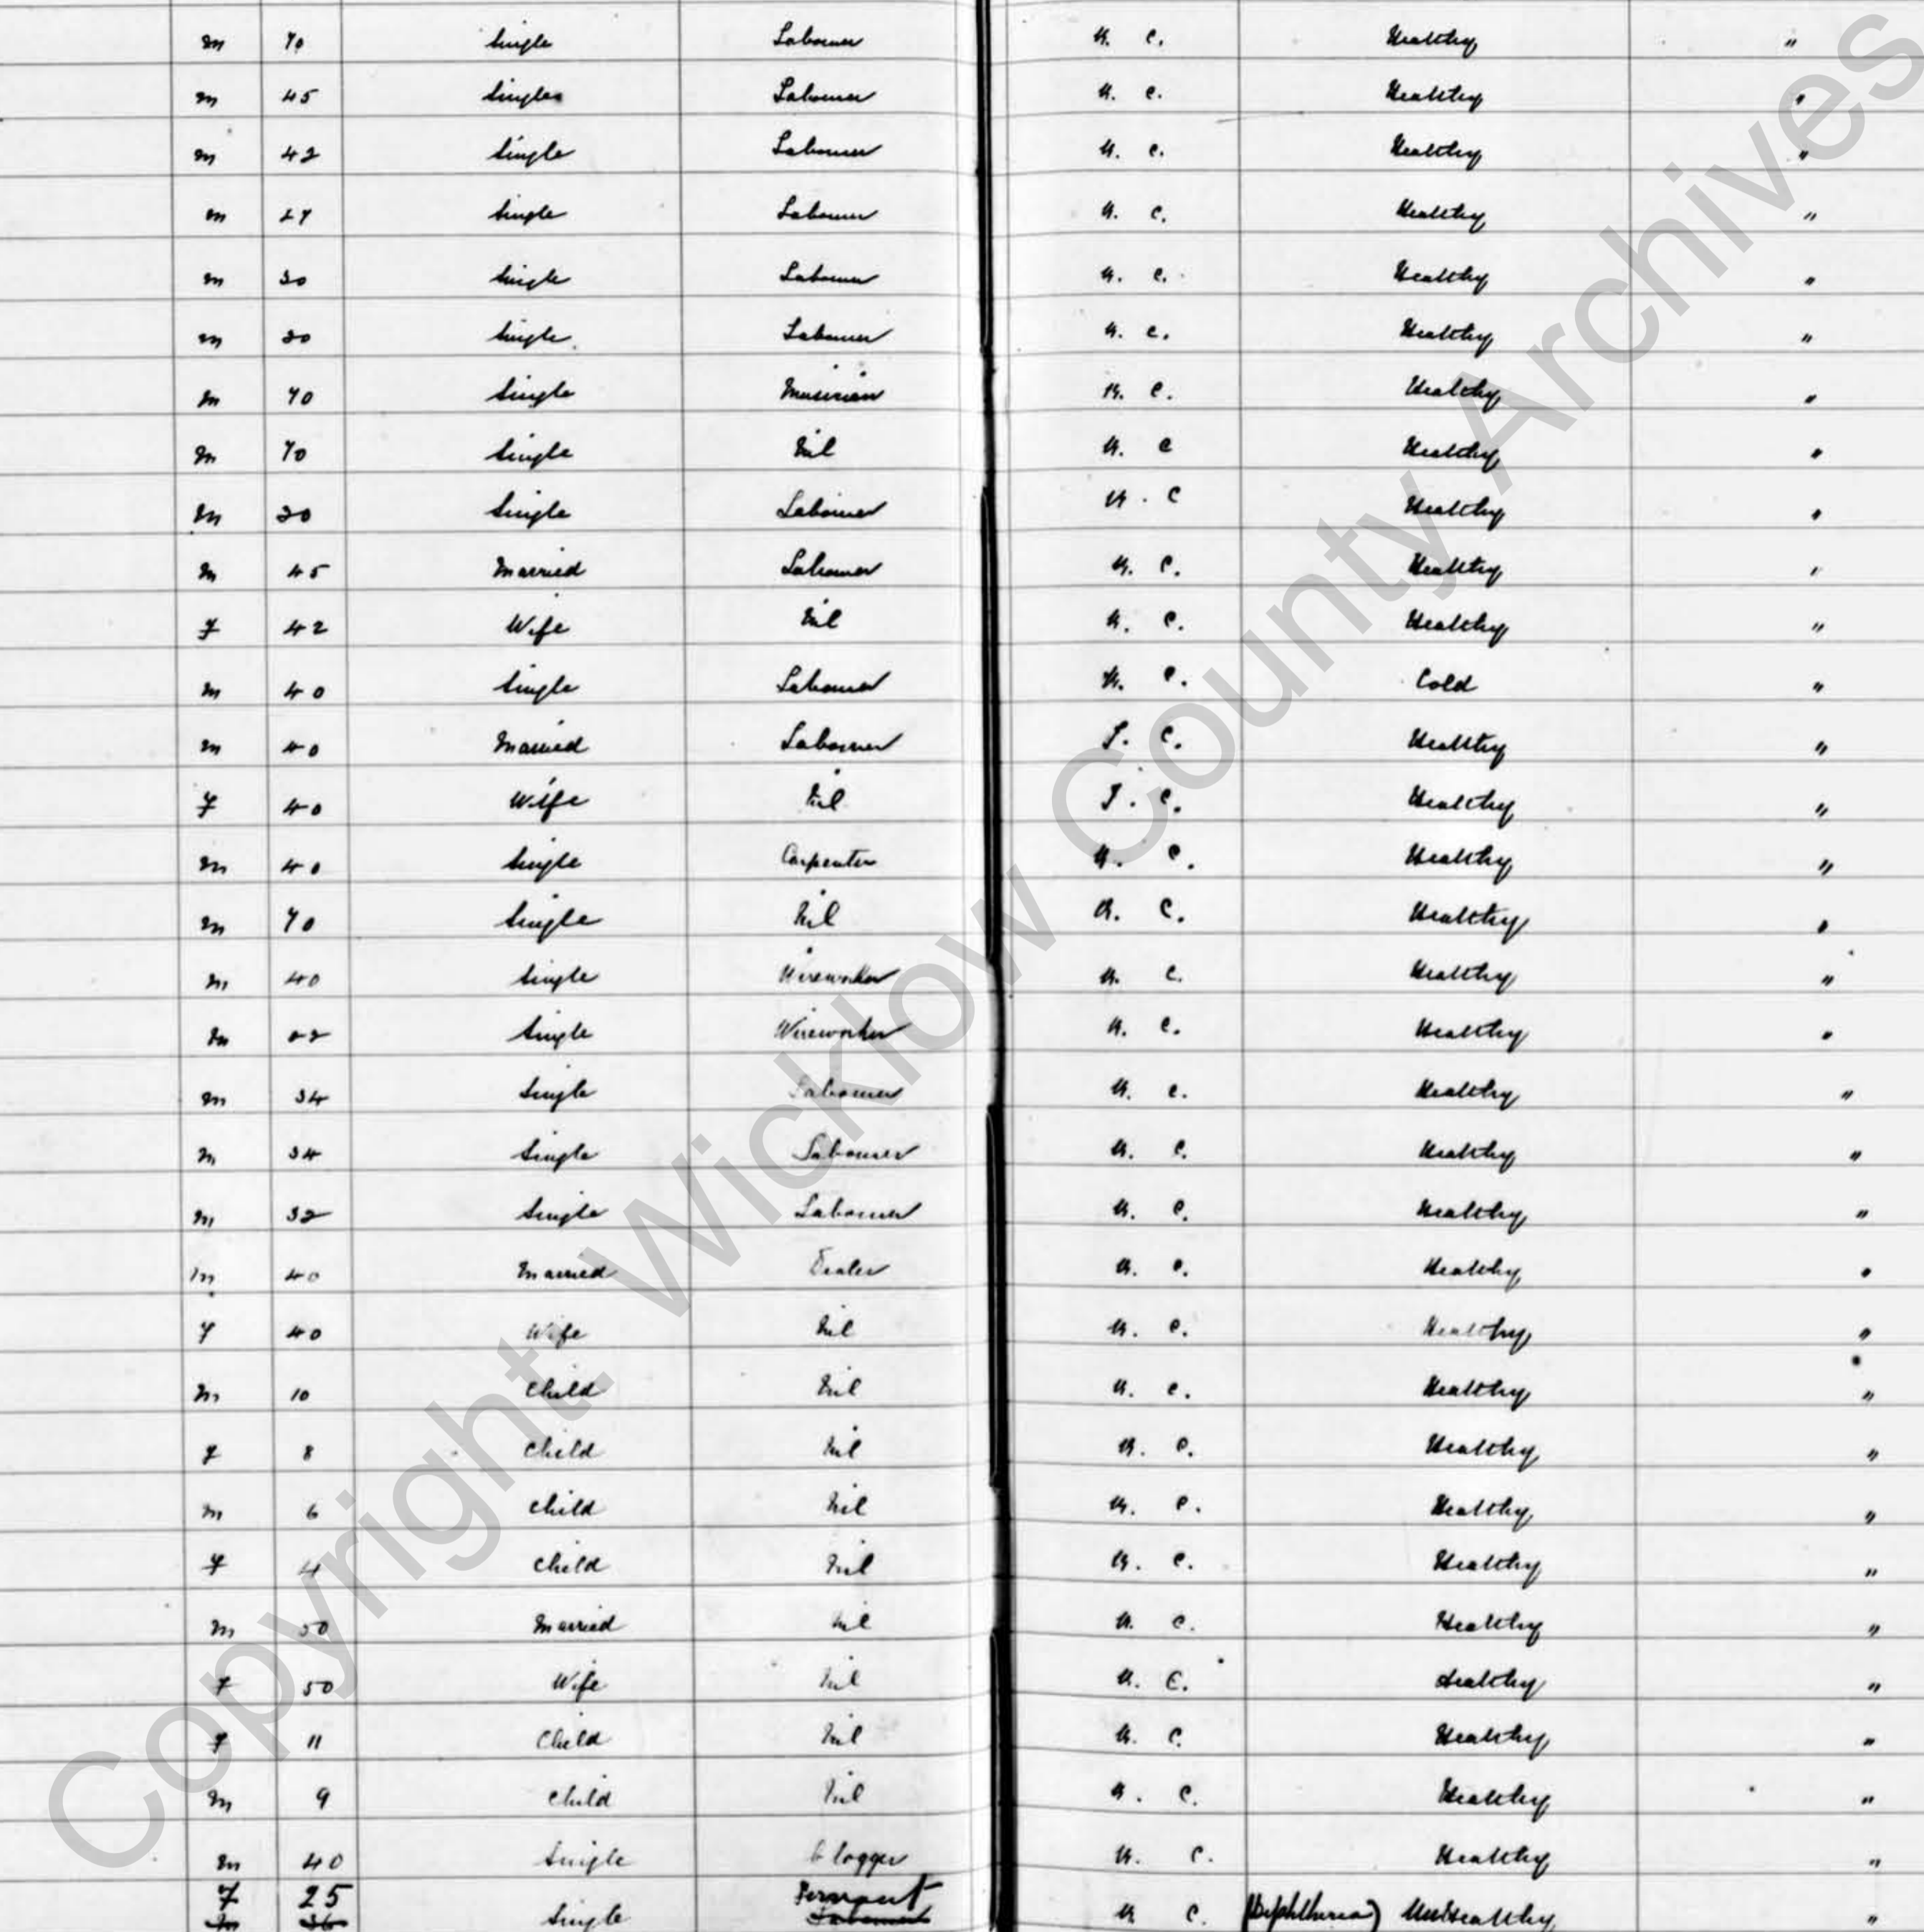 m 70 Single Labourer R. C. Healthy "
m 45 Single Labourer R. C. Healthy "
m 42 Single Labourer R. C. Healthy "
m 27 Single Labourer R. C. Healthy "
m 30 Single Labourer R. C. Healthy "
m 30 Single Labourer R. C. Healthy "
m 70 Single Musician R. C. Healthy "
m 70 Single Nil R. C Healthy "
m 30 Single Labourer R. C Healthy "
m 45 Married Labourer R. C. Healthy "
F 42 Wife Nil R. C. Healthy "
m 40 Single Labourer R. C. Cold "
m 40 Married Labourer I. C. Healthy "
F 40 Wife Nil I. C. Healthy "
m 40 Single Carpenter R. C. Healthy "
m 70 Single Nil R. C. Healthy "
m 40 Single Wireworker R. C. Healthy "
m Single Wireworker R. C. Healthy "
m 34 Single Labourer R. C. Healthy "
m 34 Single Labourer R. C. Healthy "
m 32 Single Labourer R. C. Healthy "
m 40 Married Dealer R. C. Healthy "
F 40 Wife Nil R. C. Healthy "
m 10 Child Nil R. C. Healthy "
F 8 Child Nil R. C. Healthy "
m 6 Child Nil R. C. Healthy "
F 4 Child Nil R. C. Healthy "
m 50 Married Nil R. C. Healthy "
F 50 Wife Nil R. C. Healthy "
F 11 Child Nil R. C. Healthy "
m 9 Child Nil R. C. Healthy "
m 40 Single Clogger R. C. Healthy "
F 25 Servant
m 36 Single Labourer R C. (Diphtheria) UnHealthy "
Copyright. Wicklow County Archives